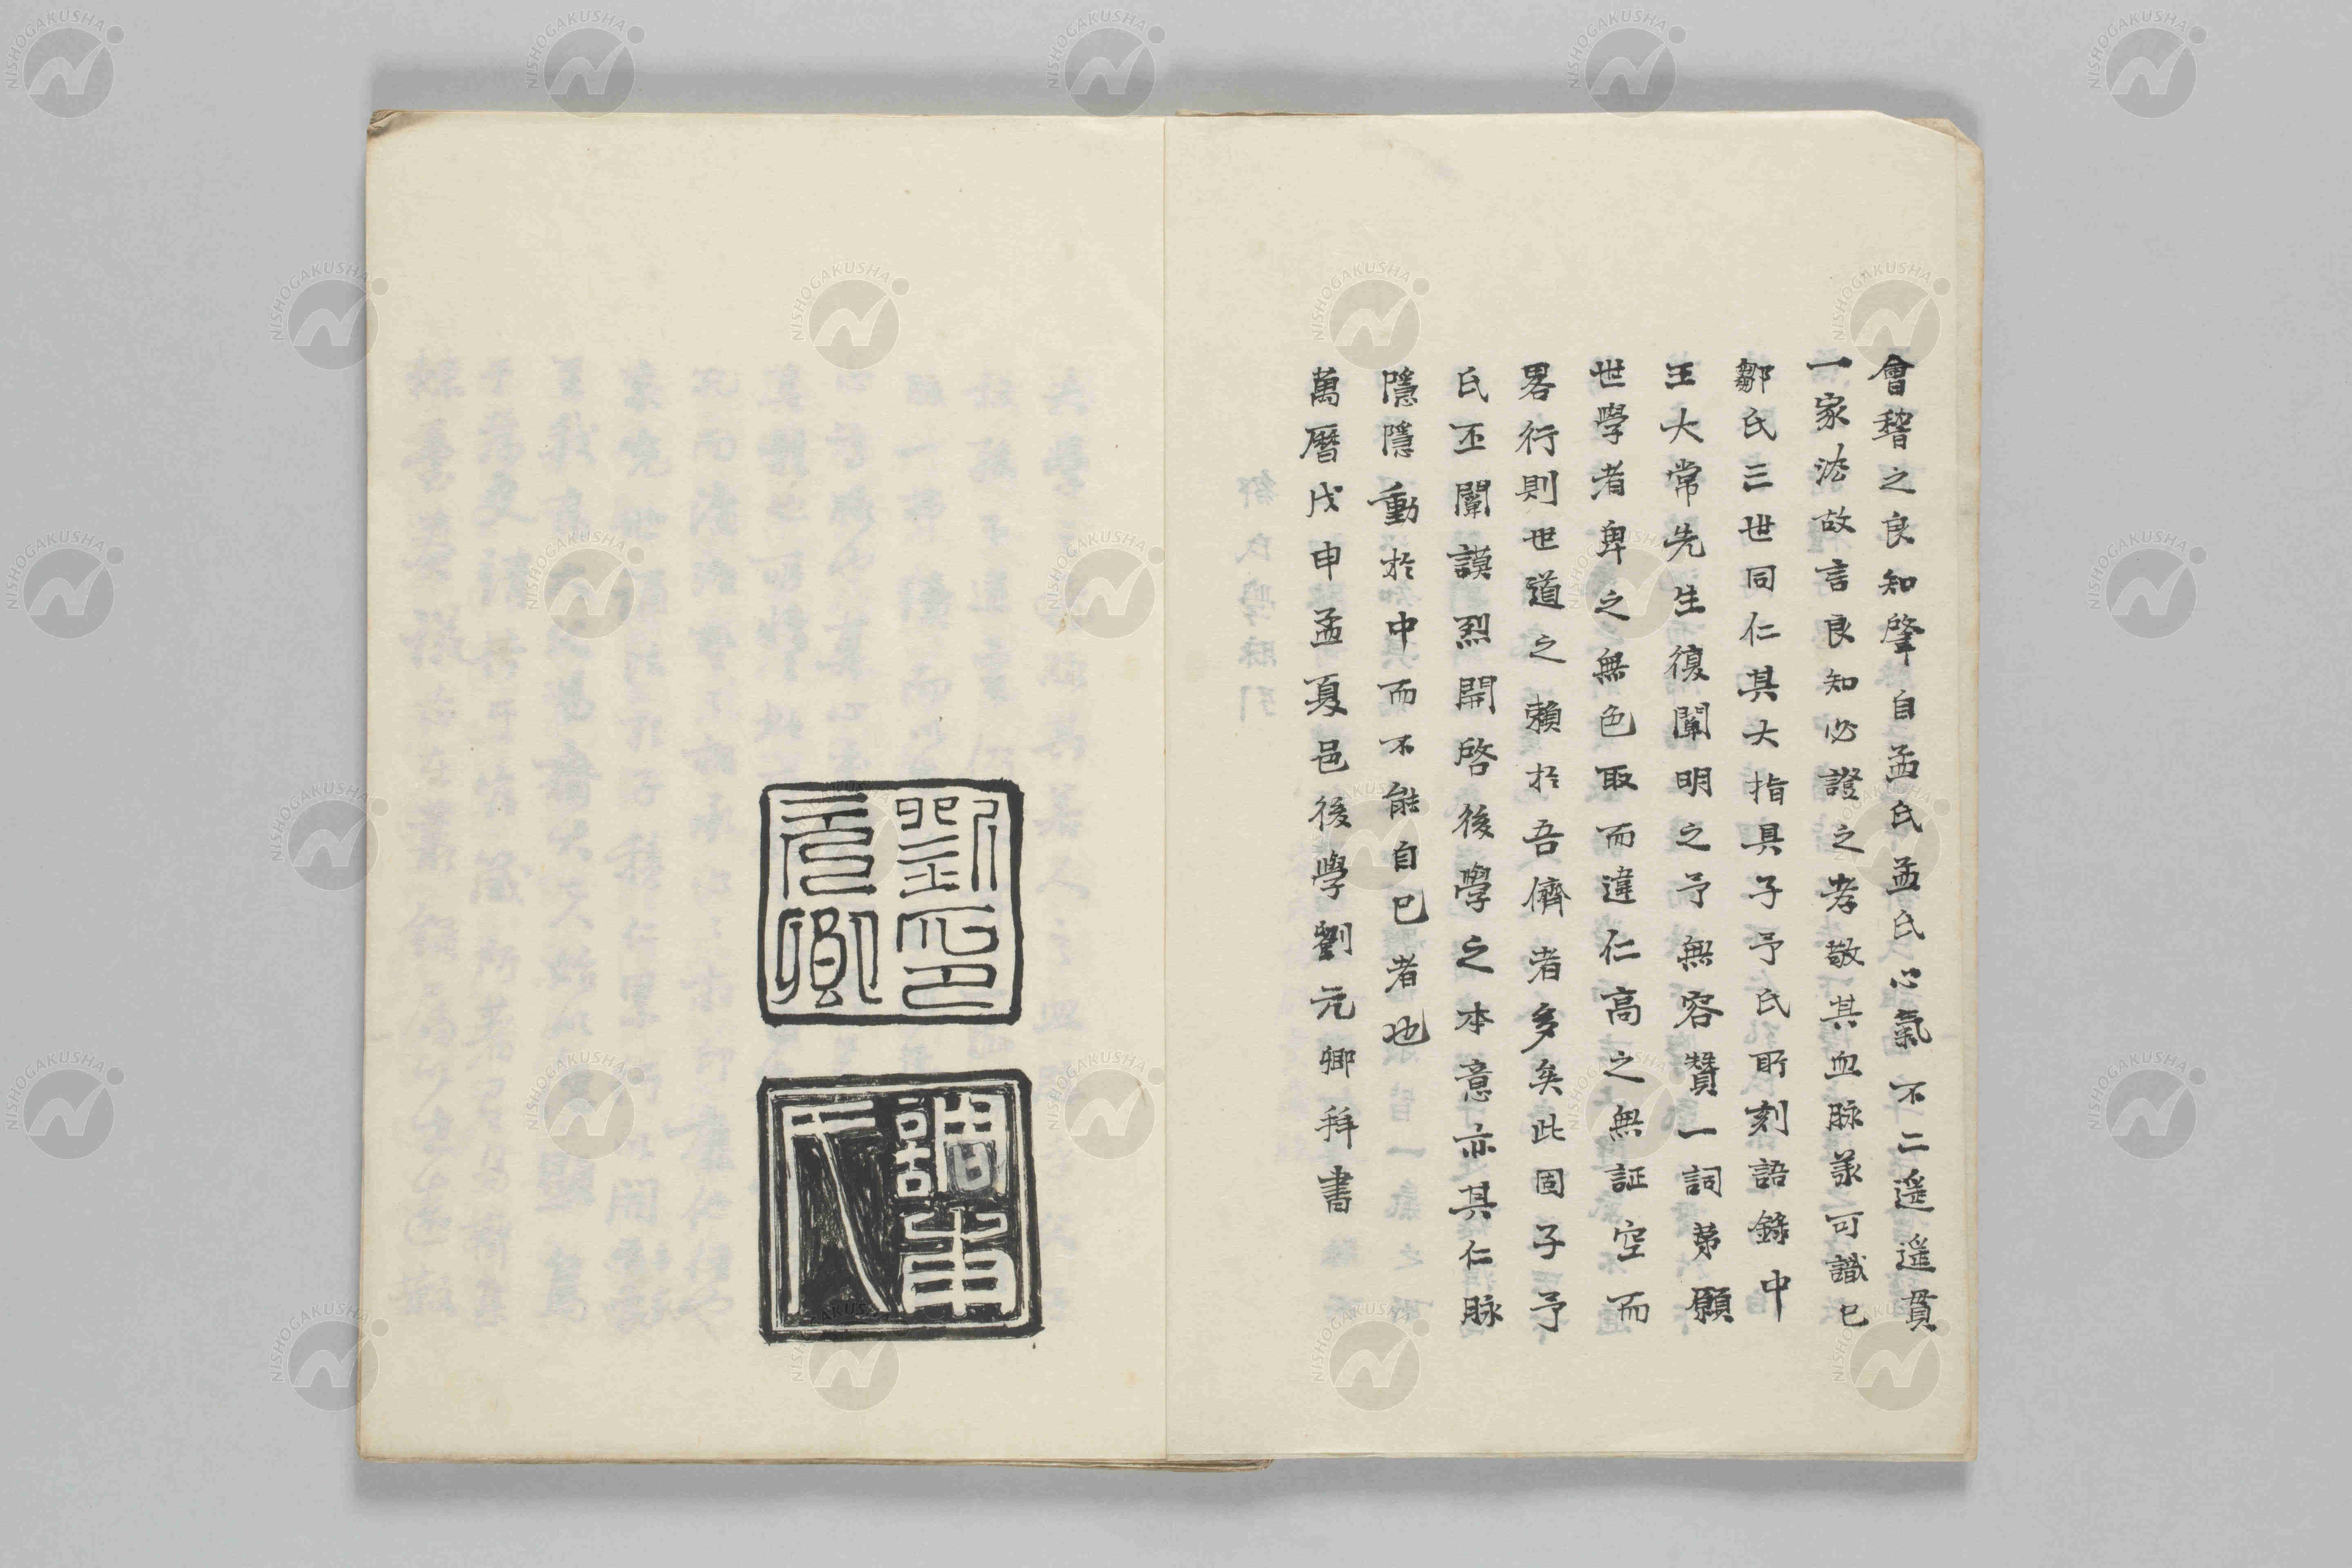 會稽之良知肇自孟氏孟氏心氣不二遥遥貫
一家法故言良知必證之孝敬其血脉羕可識已
鄒氏三世同仁其大指具子予氏所刻語錄中
王大常先生復闡明之予無容贊一詞苐願
世學者卑之無色取而違仁高之無証空而
畧行則世道之賴扵吾儕者多矣此固子予
氏丕闡謨烈開啓後學之本意亦其仁脉
隱隱動扵中而不能自已者也
萬曆戊申孟夏邑後學劉元卿拜書
劉印元卿
NISHOGAKUSHA